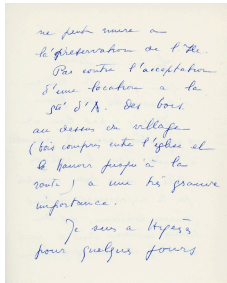 ne peut nuire à
la préservation de l'Ile.
Par contre l'acceptation
d'une location à la
Sté d'A. des bois
au dessus du village
(bois compris entre l'Eglise et
le manoir jusqu'à la
route) a une très grande
importance.
Je suis à
pour quelques jours